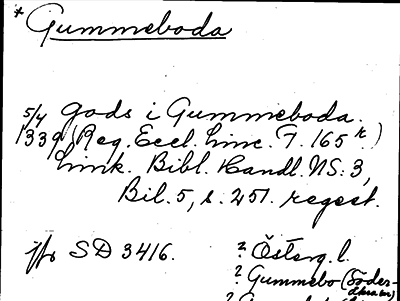 * Gummeboda
5/4 gods i Gummeboda.
1339 (Reg. Eccl. Linc. T. 165 r.)
Link. Bibl. Handl. NS: 3,
Bil. 5, s. 251. regest.
jfr SD 3416. ? Österg. l.
? Gummebo (Söder-
åkra sn)